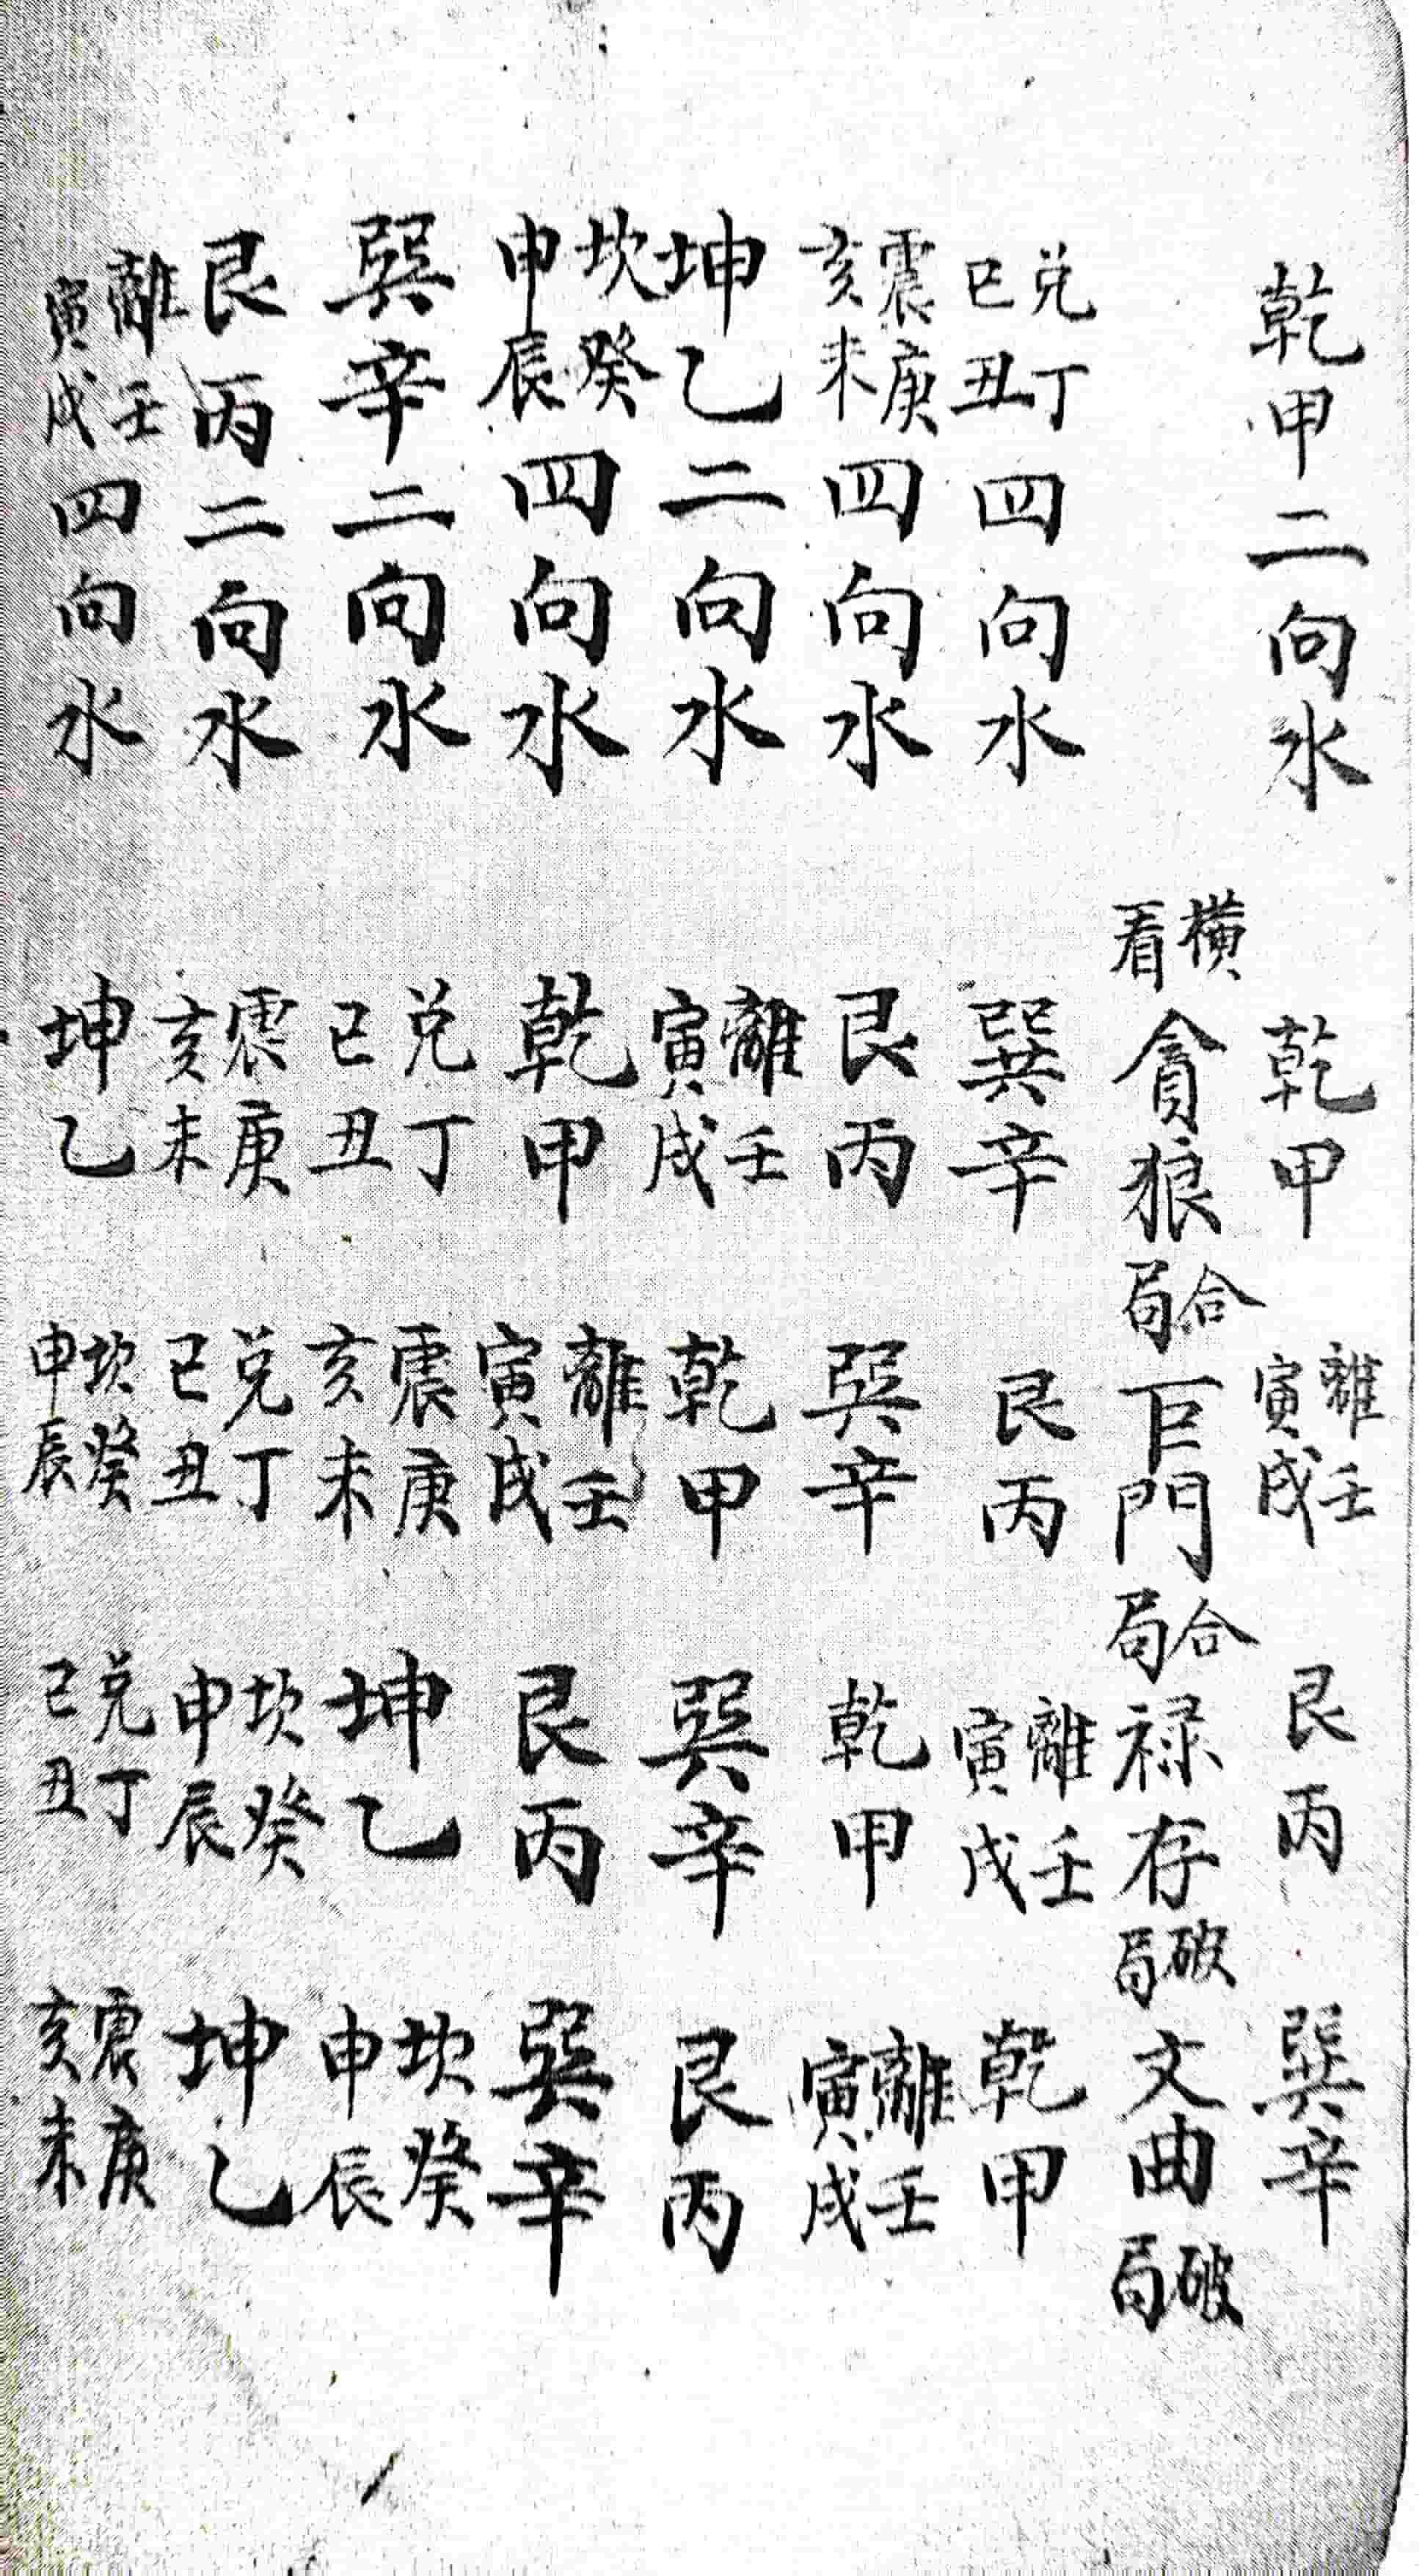 乾甲二向水 乾甲 離壬寅戌 艮丙 巽辛
橫看 貪狼合局 巨門合局 禄存破局 文曲破局
兑丁巳丑四向水 巽辛 艮丙 離壬寅戌 乾甲
震庚亥未四向水 艮丙 巽辛 乾甲 離壬寅戌
坤乙二向水 離壬寅戌 乾甲 巽辛 艮丙
坎癸申辰四向水 乾甲 離壬寅戌 艮丙 巽辛
巽辛二向水 兑丁巳丑 震庚亥未 坤乙 坎癸申辰
艮丙二向水 震庚亥未 兑丁巳丑 坎癸申辰 坤乙
離壬寅戌四向水 坤乙 坎癸申辰 兑丁巳丑 震庚亥未